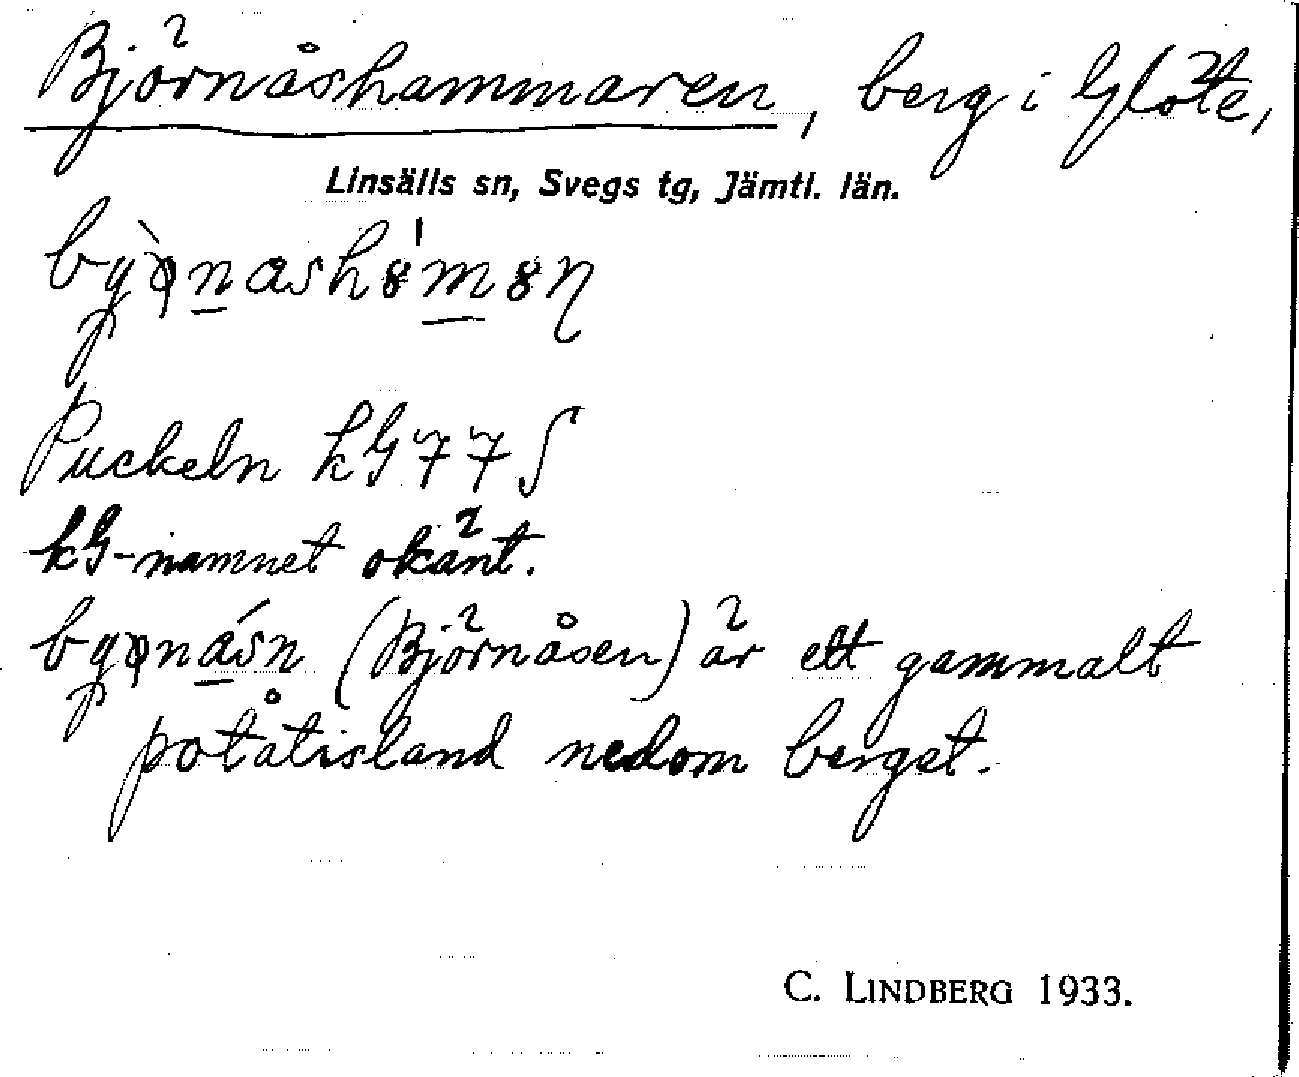 Björnåshammaren, berg i Glöte,
Linsälls sn, Svegs tg, Jämtl. län.
Puckeln kG 77 S
kG-namnet okänt.
(Björnåsen) är ett gammalt
potatisland nedom berget.
C. LINDBERG 1933.